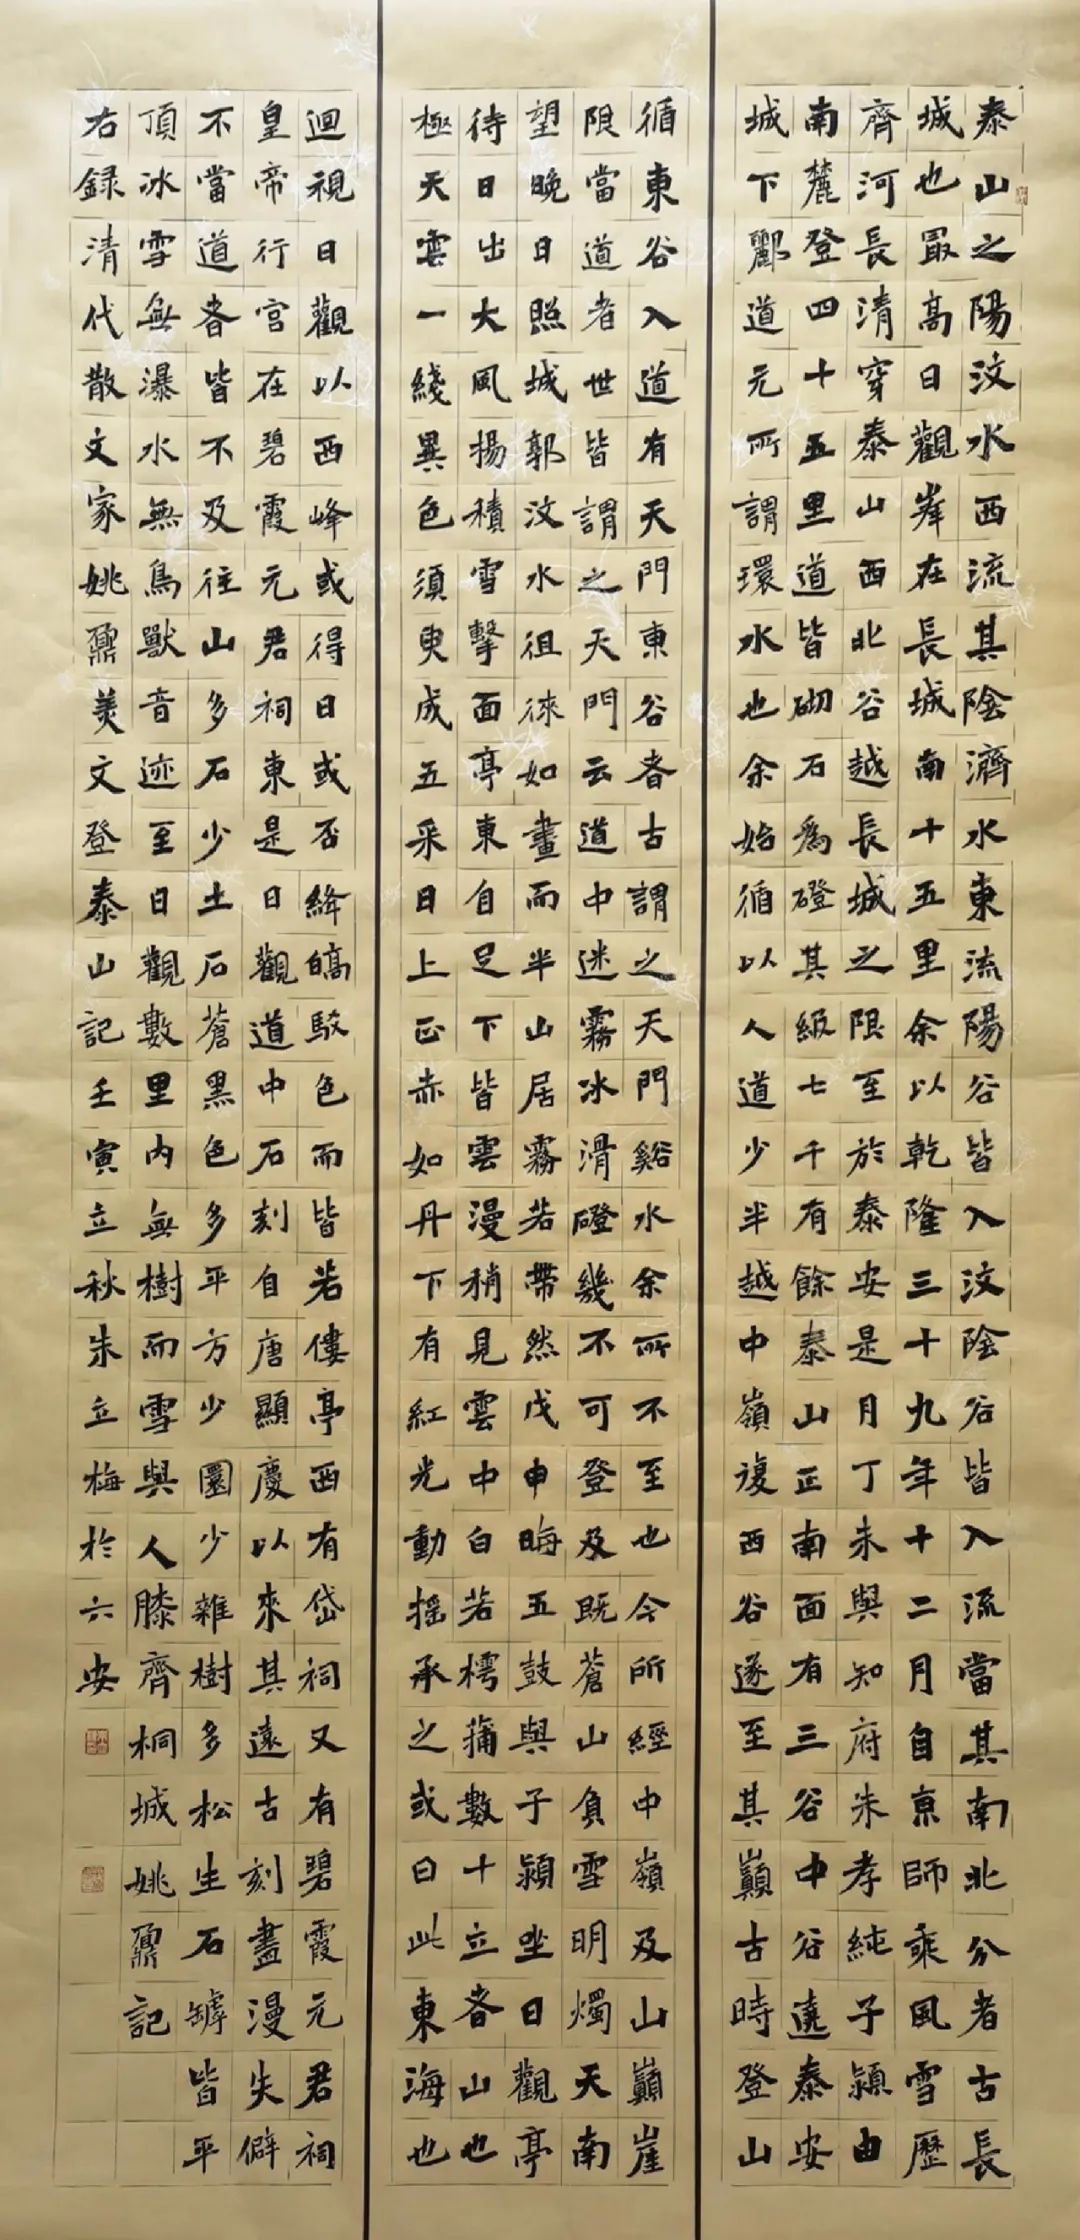 泰山之陽汶水西流其陰濟水東流陽谷皆入汶陰谷皆入流當其南北分者古長
城也冣高日觀峯在長城南十五里余以乾隆三十九年十二月自京師乘風雪歷
齊河長清穿泰山西北谷越長城之限至於泰安是月丁未與知府朱孝純子潁由
南麓登四十五里道皆砌石為磴其級七千有餘泰山正南面有三谷中谷遶泰安
城下酈道元所謂環水也余始循以人道少半越中嶺復西谷遂至其巔古時登山
循東谷入道有天門東谷者古謂之天門谿水余所不至也今所經中嶺及山巔崖
限當道者世皆謂之天門云道中迷霧冰滑磴幾不可登及既蒼山負雪明燭天南
望晚日照城郭汶水徂徠如畫而半山居霧若帶然戊申晦五鼓與子潁坐日觀亭
待日出大風揚積雪擊面亭東自足下皆雲漫稍見雲中白若樗蒱數十立者山也
極天雲一綫異色須臾成五采日上正赤如丹下有紅光動搖承之或曰此東海也
迴視日觀以西峰或得日或否絳皜駁色而皆若僂亭西有岱祠又有碧霞元君祠
皇帝行宮在碧霞元君祠東是日觀道中石刻自唐顯慶以來其遠古刻盡漫失僻
不當道者皆不及往山多石少土石蒼黑色多平方少圜少雜樹多松生石罅皆平
頂冰雪無瀑水無鳥獸音迹至日觀數里內無樹而雪與人膝齊桐城姚鼐記
右録清代散文家姚鼐美文登泰山記壬寅立秋朱立梅於六安